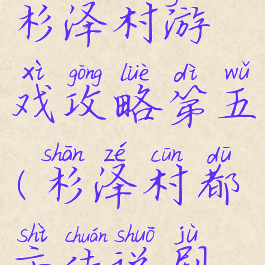 杉泽村游
xì gōng lüè dì wǔ
戏攻略第五
shān zé cūn dū
(杉泽村都
shì chuán shuō jù
市传说剧